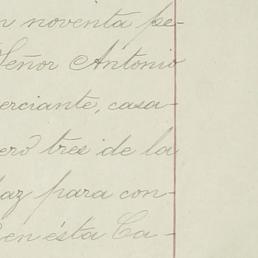 n noventa pe-
Señor Antonio
erciante, casa-
ero tres de la
paz para con-
en ésta Ca-